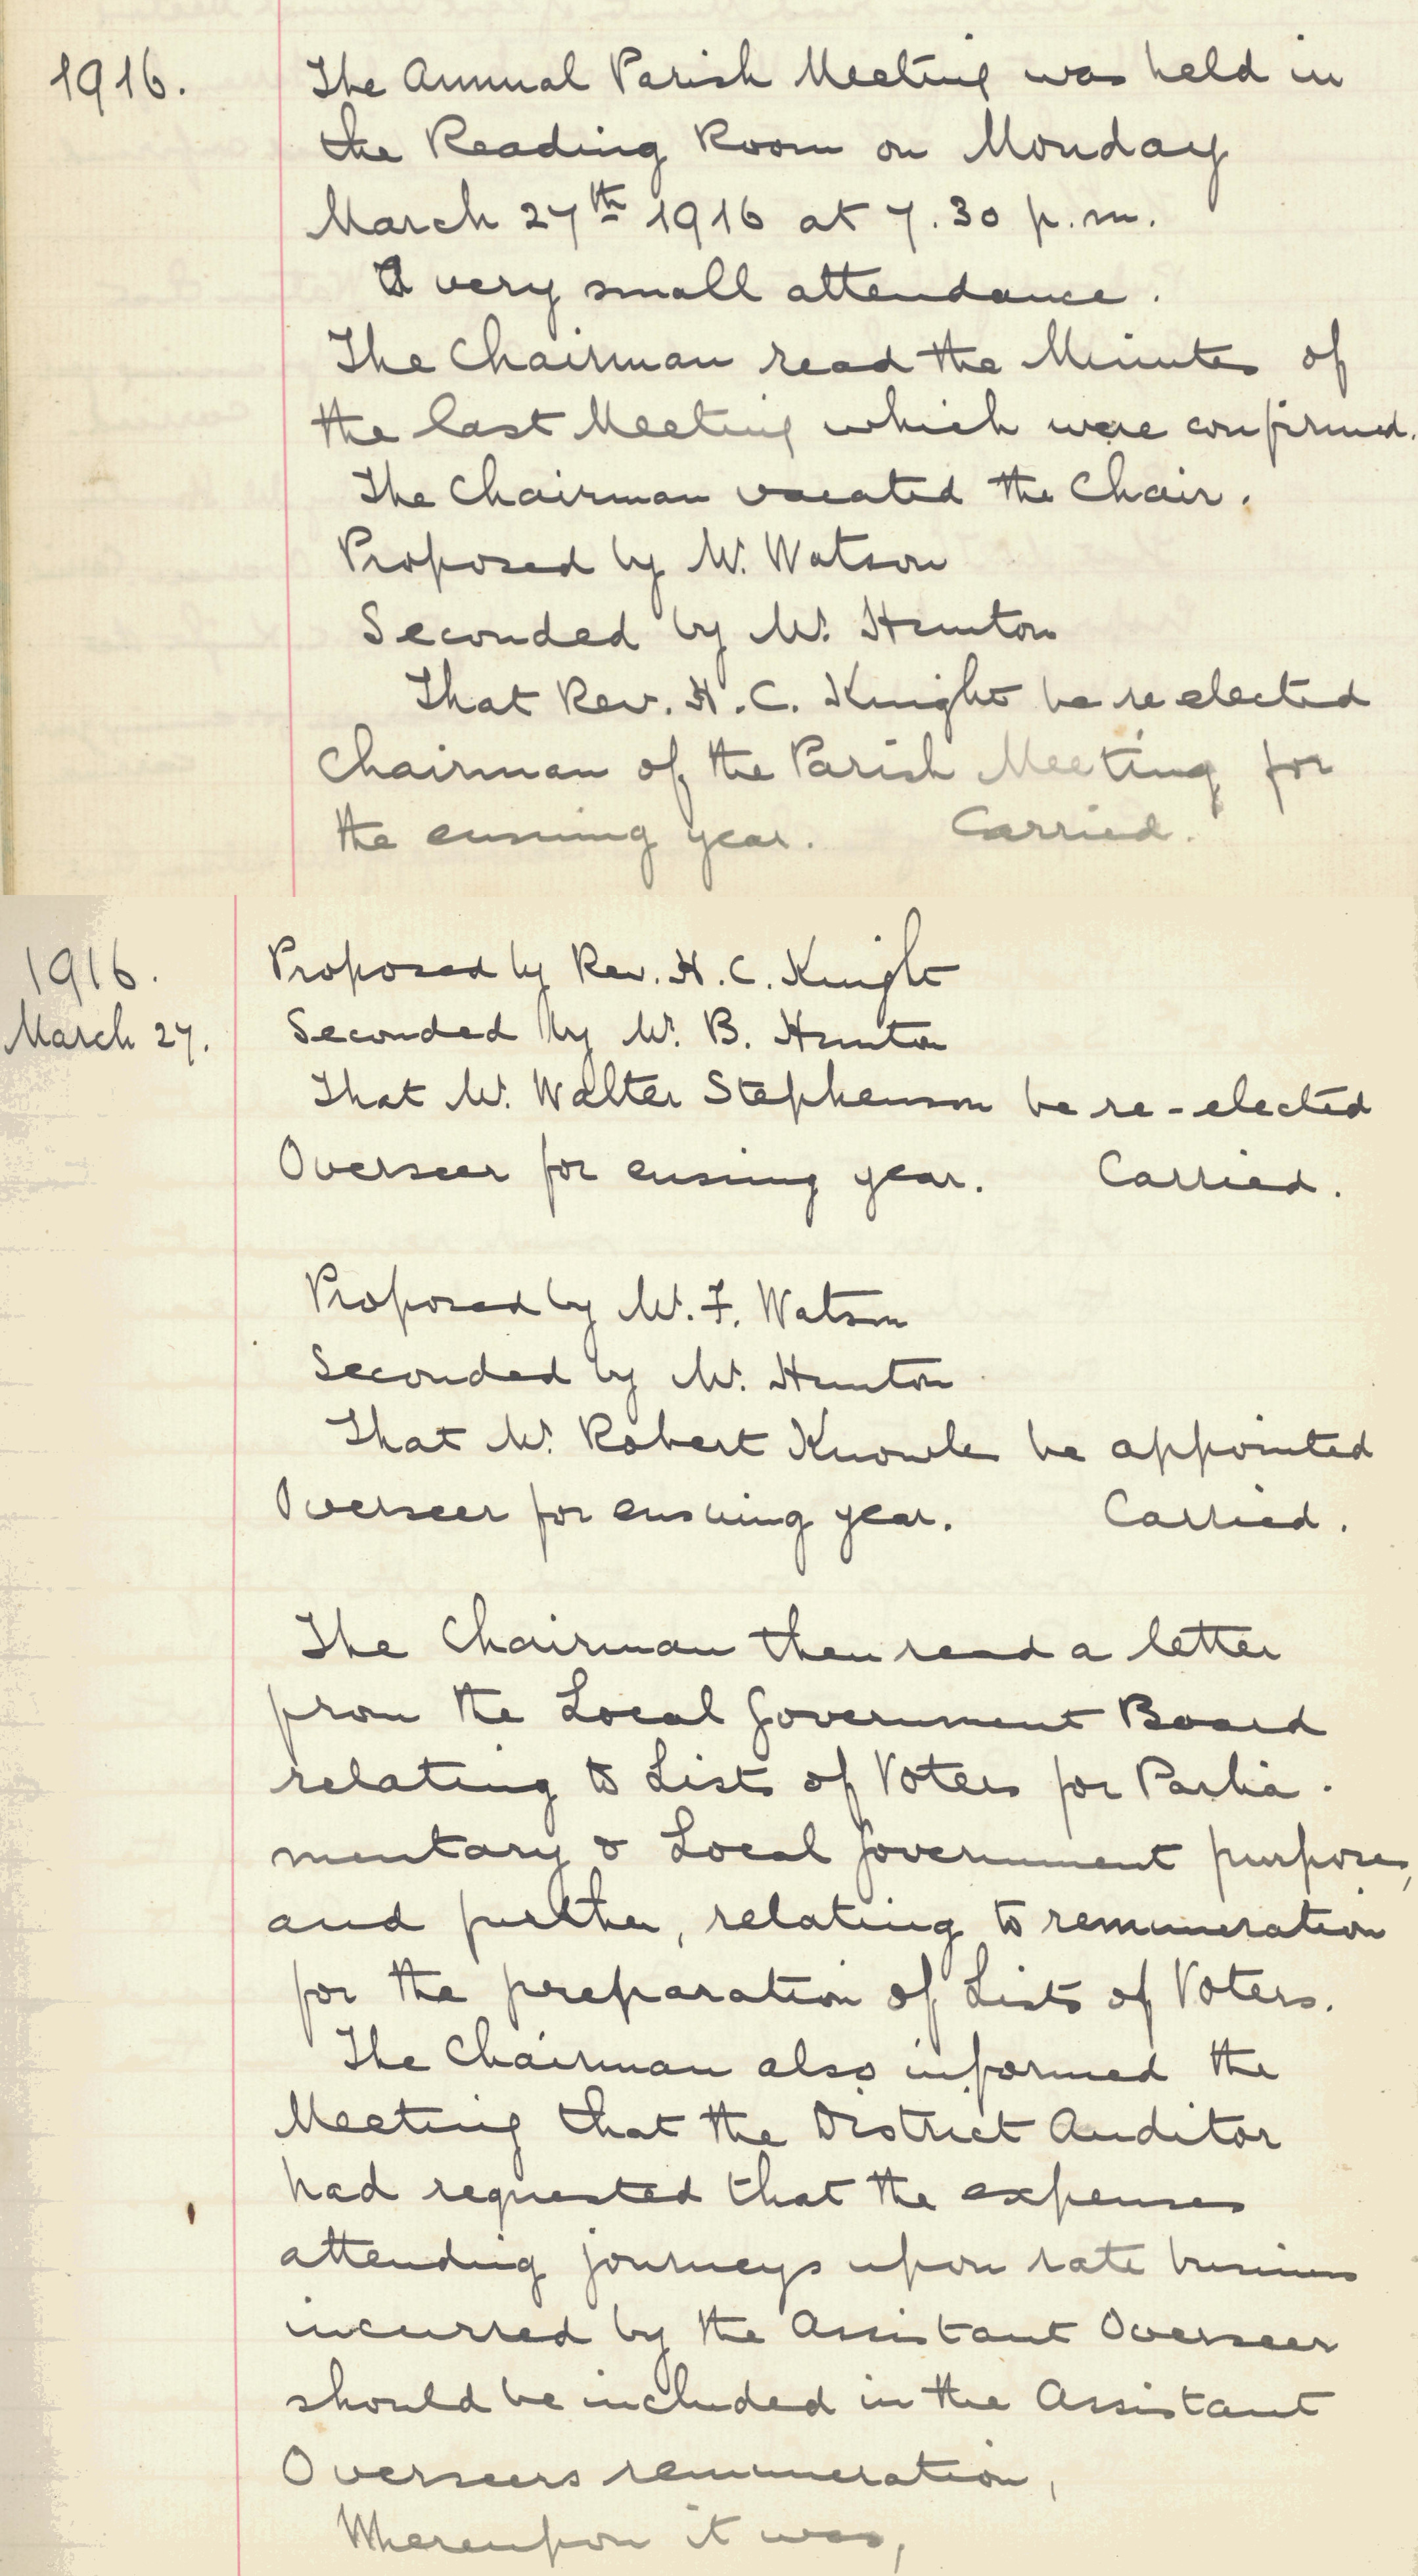 1916.
The Annual Parish Meeting was held in
the Reading Room on Monday
March 27th 1916 at 7.30 p.m.
A very small attendance.
The Chairman read the Minutes of
the last Meeting which were confirmed.
The Chairman vacated the Chair.
Proposed by Mr. Watson
Seconded by Mr. Hunton
That Rev. H. C. Knight be re elected
Chairman of the Parish Meeting for
the ensuing year. Carried.
1916.
March 27.
Proposed by Rev. H. C. Knight
Seconded by Mr. B. Hunton
That Mr. Walter Stephenson be re-elected
Overseer for ensuing year. Carried.
Proposed by Mr. F. Watson
Seconded by Mr. Hunton
That Mr. Robert Knowles be appointed
Overseer for ensuing year. Carried.
The Chairman then read a letter
from the Local Government Board
relating to Lists of Voters for Parlia-
mentary & Local Government purposes,
and further, relating to remuneration
for the preparation of Lists of Voters.
The Chairman also informed the
Meeting that the District Auditor
had requested that the expenses
attending journeys upon rate business
incurred by the Assistant Overseer
should be included in the Assistant
Overseers remuneration,
Whereupon it was,